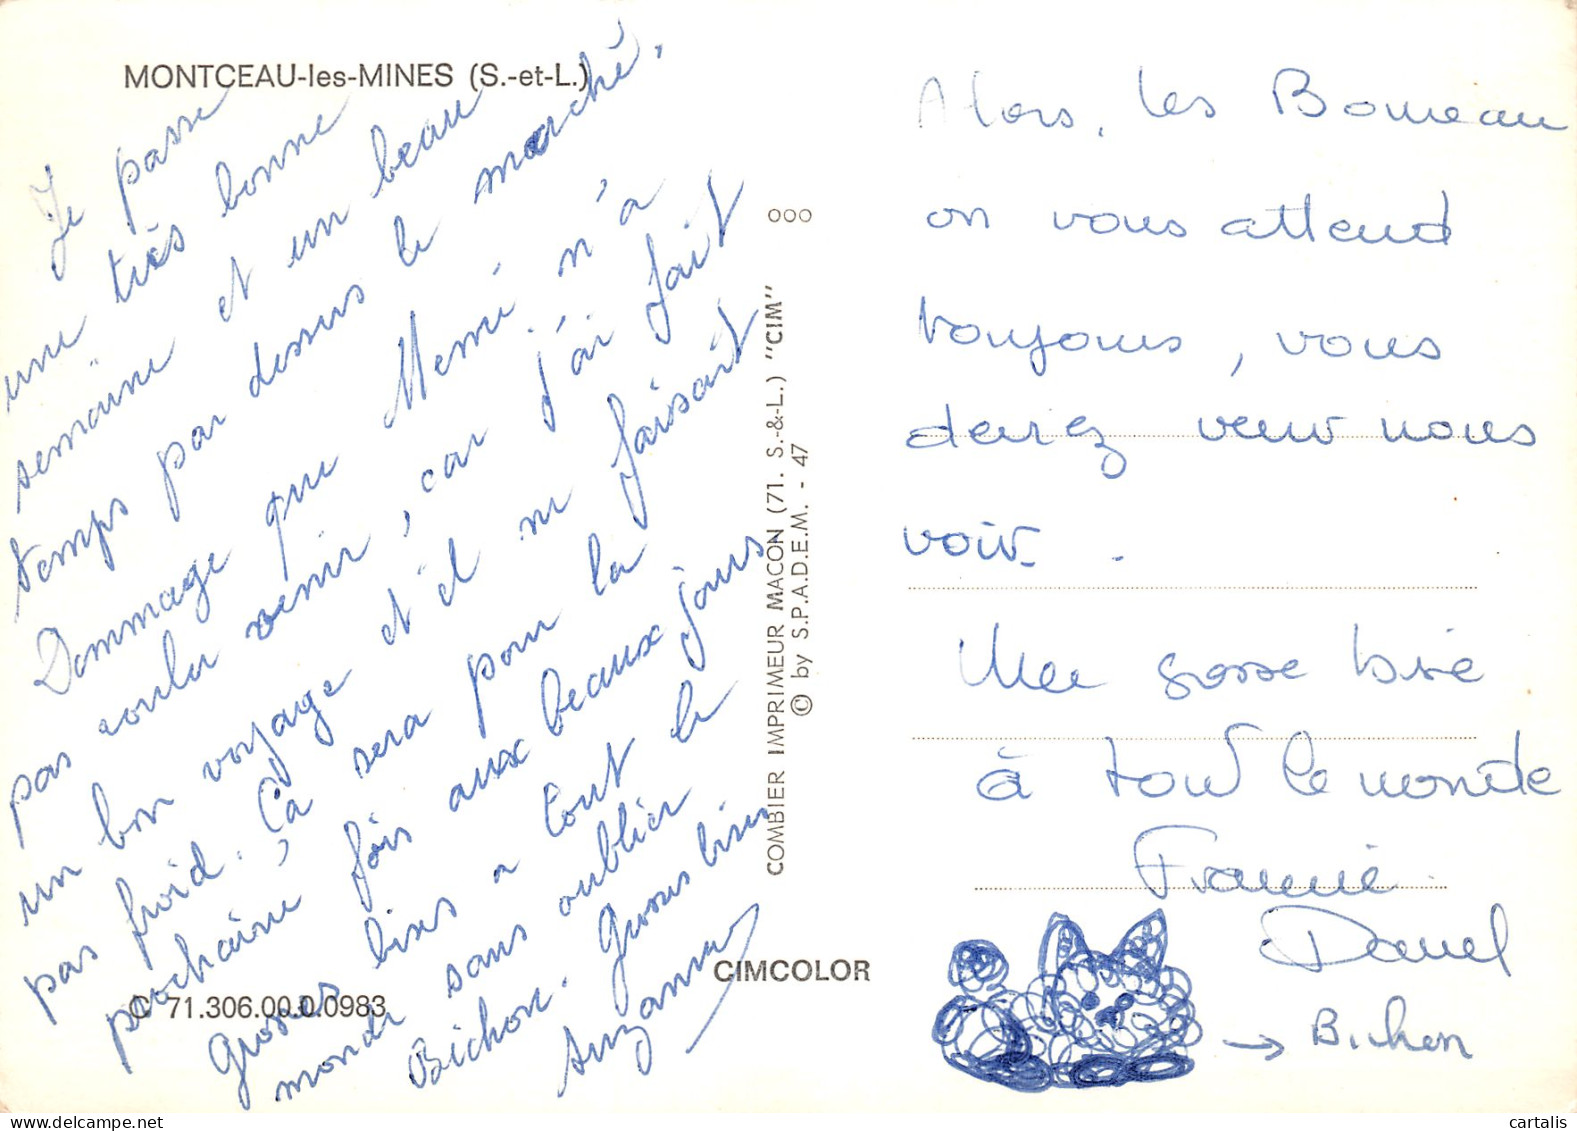 MONTCEAU-les-MINES (S.-et-L.)
Je passe
une très bonne
semaine et un beau
temps par dessus le marché.
Dommage que Mémé n'a
pas voulu venir, car j'ai fait
un bon voyage et il ne faisait
pas froid. Ça sera pour la
prochaine fois aux beaux jours
Grosses bises a tout le
monde sans oublier
Bichon. Grosses bises
Suzanne
C 71.306.00.0.0983
CIMCOLOR
000
COMBIER IMPRIMEUR MACON (71. S.-&-L.) "CIM"
© by S.P.A.D.E.M. - 47
Alors, les Bomeau
on vous attend
toujours, vous
devez venir nous
voir.
Une grosse bise
à tout le monde
Francine
Daniel
→ Bichon
cartalis